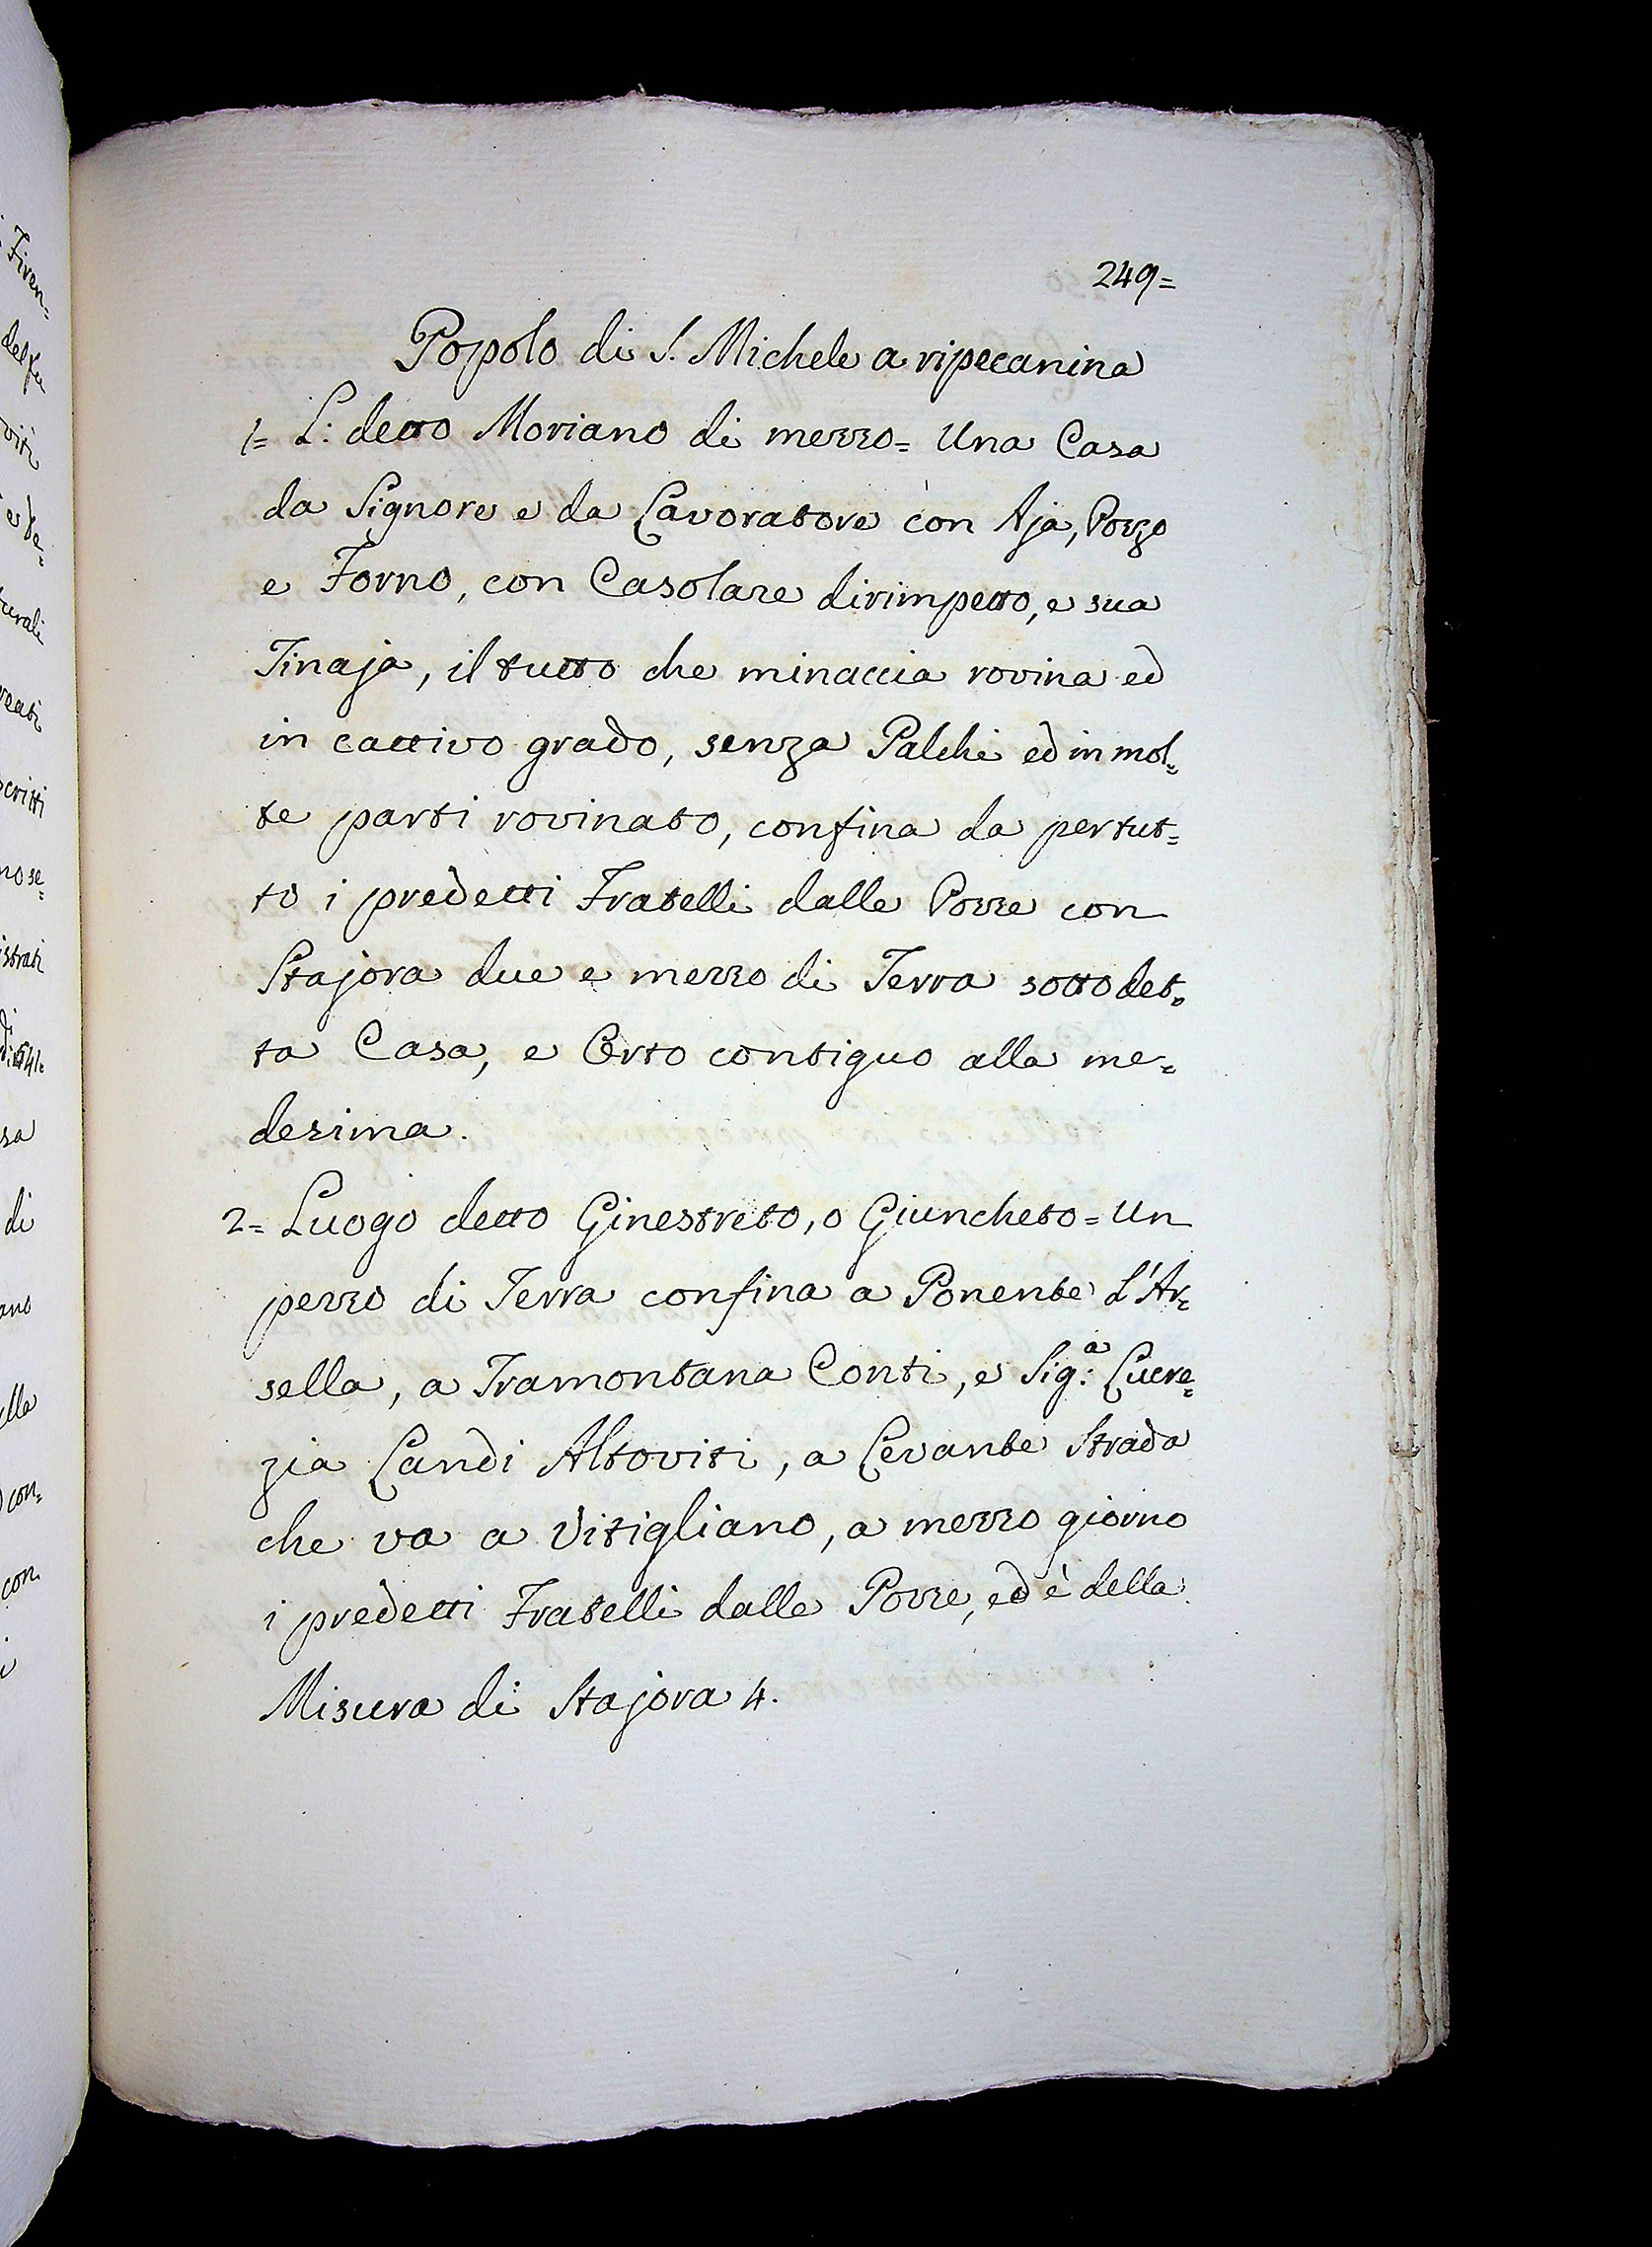 249=
Popolo di S. Michele a ripecanina
1= L: detto Moriano di mezzo= Una Casa
da Signore e da Lavoratore con Aja, Pozzo
e Forno, con Casolare dirimpetto, e sua
Tinaja, il tutto che minaccia rovina ed
in cattivo grado, senza Palchi ed in mol=
te parti rovinato, confina da pertut=
to i predetti Fratelli dalle Pozze con
Stajora due e mezzo di Terra sotto det=
ta Casa, e Orto contiguo alla me=
desima.
2= Luogo detto Ginestreto, o Giuncheto= Un
pezzo di Terra confina a Ponente L'Ar=
sella, a Tramontana Conti, e Sig:ª Lucre=
zia Landi Altoviti, a Levante Strada
che va a Vitigliano, a mezzo giorno
i predetti Fratelli dalle Pozze, ed è della
Misura di Stajora 4.